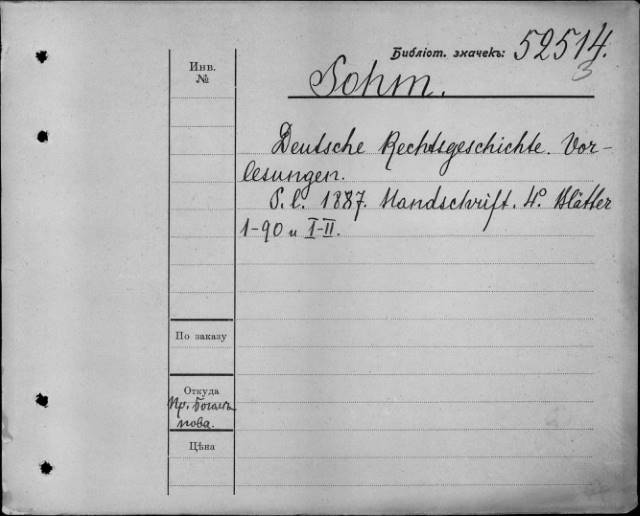 Библіот. значекъ: 52514.
3
Инв.
№
Sohm.
Deutsche Rechtsgeschichte. Vor-
lesungen.
S. l. 1887. Handschrift. 4°. Blätter
1-90 u I-II.
По заказу
Откуда
Пр. Боголѣ-
пова.
Цѣна